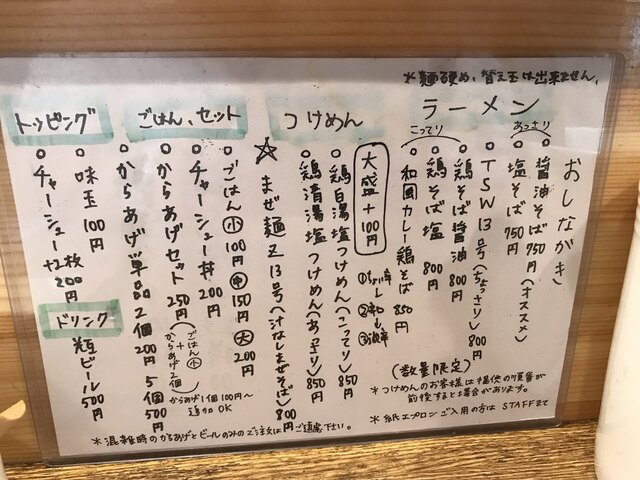 おしながき
＊麺硬め、替え玉は出来ません。
ラーメン
あっさり
○醤油そば 750円 (オススメ)
○塩そば 750円
○TSW13号(ちょっさり) 800円
こってり
○鶏そば醤油 800円
○鶏そば塩 800円
○和風カレー鶏そば 850円
(数量限定)
＊つけめんのお客様は提供の順番が
前後する場合があります。
＊紙エプロンご入用の方は STAFFまで
つけめん
大盛+100円
○鶏白湯塩つけめん(こってり) 850円
○鶏清湯塩つけめん(あっさり) 850円
☆まぜ麺Z13号(汁なしまぜそば) 800円
ごはん、セット
○ごはん 小 100円 中 150円 大 200円
○チャーシュー丼 200円
○からあげセット 250円 (ごはん小+からあげ2個)
からあげ1個100円〜
追加OK
○からあげ単品 2個200円 5個500円
トッピング
○味玉 100円
○チャーシュー+2枚 200円
ドリンク
瓶ビール 500円
＊混雑時のからあげとビールのみのご注文はご遠慮下さい。